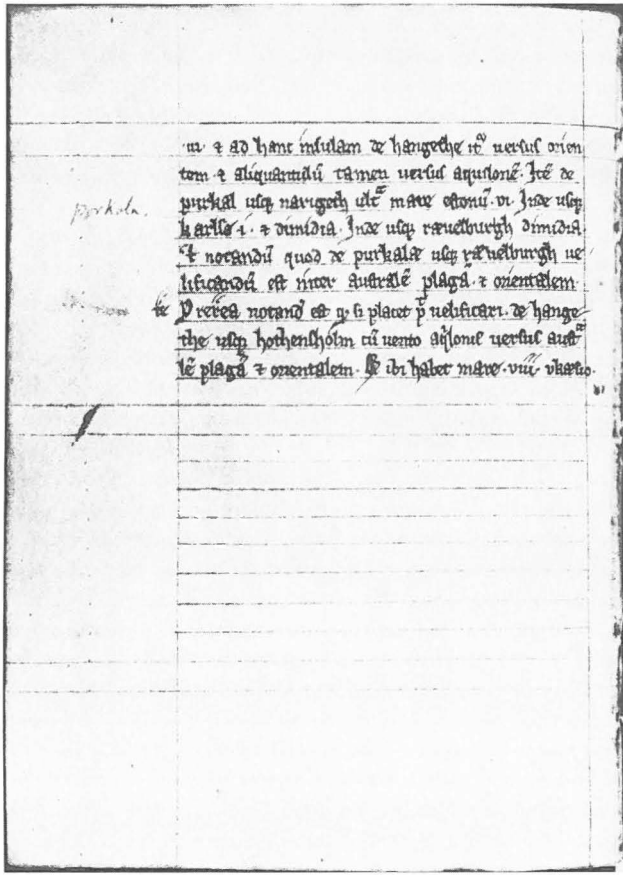 .iii. ⁊ ad hanc insulam de hangethe itᵘ versus orien
tem ⁊ aliquantulū tamen versus aquilonē. Itē de
purkal usq narigeth ult̄ᵃ mare estonū .vi. Inde usq
karlsø .i. ⁊ dimidia. Inde usq rævelburgh dimidia
⁊ notandū quod de purkalæ usq rævelburgh ve
lificandū est inter australē plagā ⁊ orientalem.
Preterea notand̄ est qͥ si placet p̄ velificari. de hange
the usq hothensholm cū vento aqͥlonis versus austᵃ
lē plagā ⁊ orientalem. Et ibi habet mare .viii. vkæsio.
porkala.